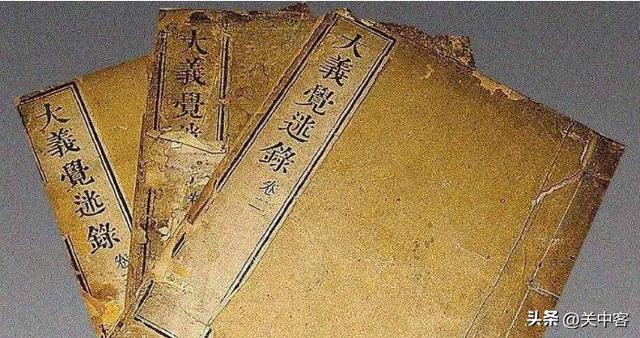 大義覺迷錄 卷
大義覺
大義覺迷錄 卷二
头条 @关中客